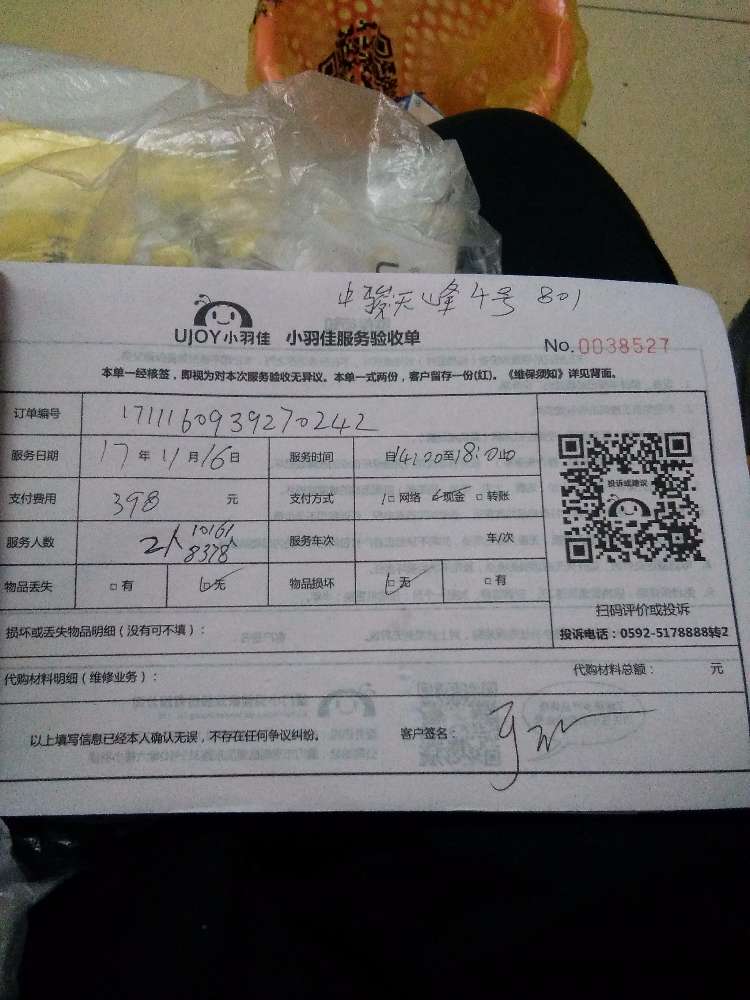 中骏天峰4号 801
UJOY小羽佳 小羽佳服务验收单
No.0038527
本单一经核签，即视为对本次服务验收无异议。本单一式两份，客户留存一份(红)。《维保须知》详见背面。
订单编号 1711160939270242
服务日期 17年11月16日 服务时间 自14:00至18:00止
支付费用 398 元 支付方式 □网络 □现金 □转账
服务人数 2人 10161 8378人 服务车次 车/次
物品丢失 □有 □无 物品损坏 □无 □有
投诉或建议
扫码评价或投诉
损坏或丢失物品明细（没有可不填）：
投诉电话：0592-5178888转2
代购材料明细（维修业务）： 代购材料总额： 元
以上填写信息已经本人确认无误，不存在任何争议纠纷。 客户签名：